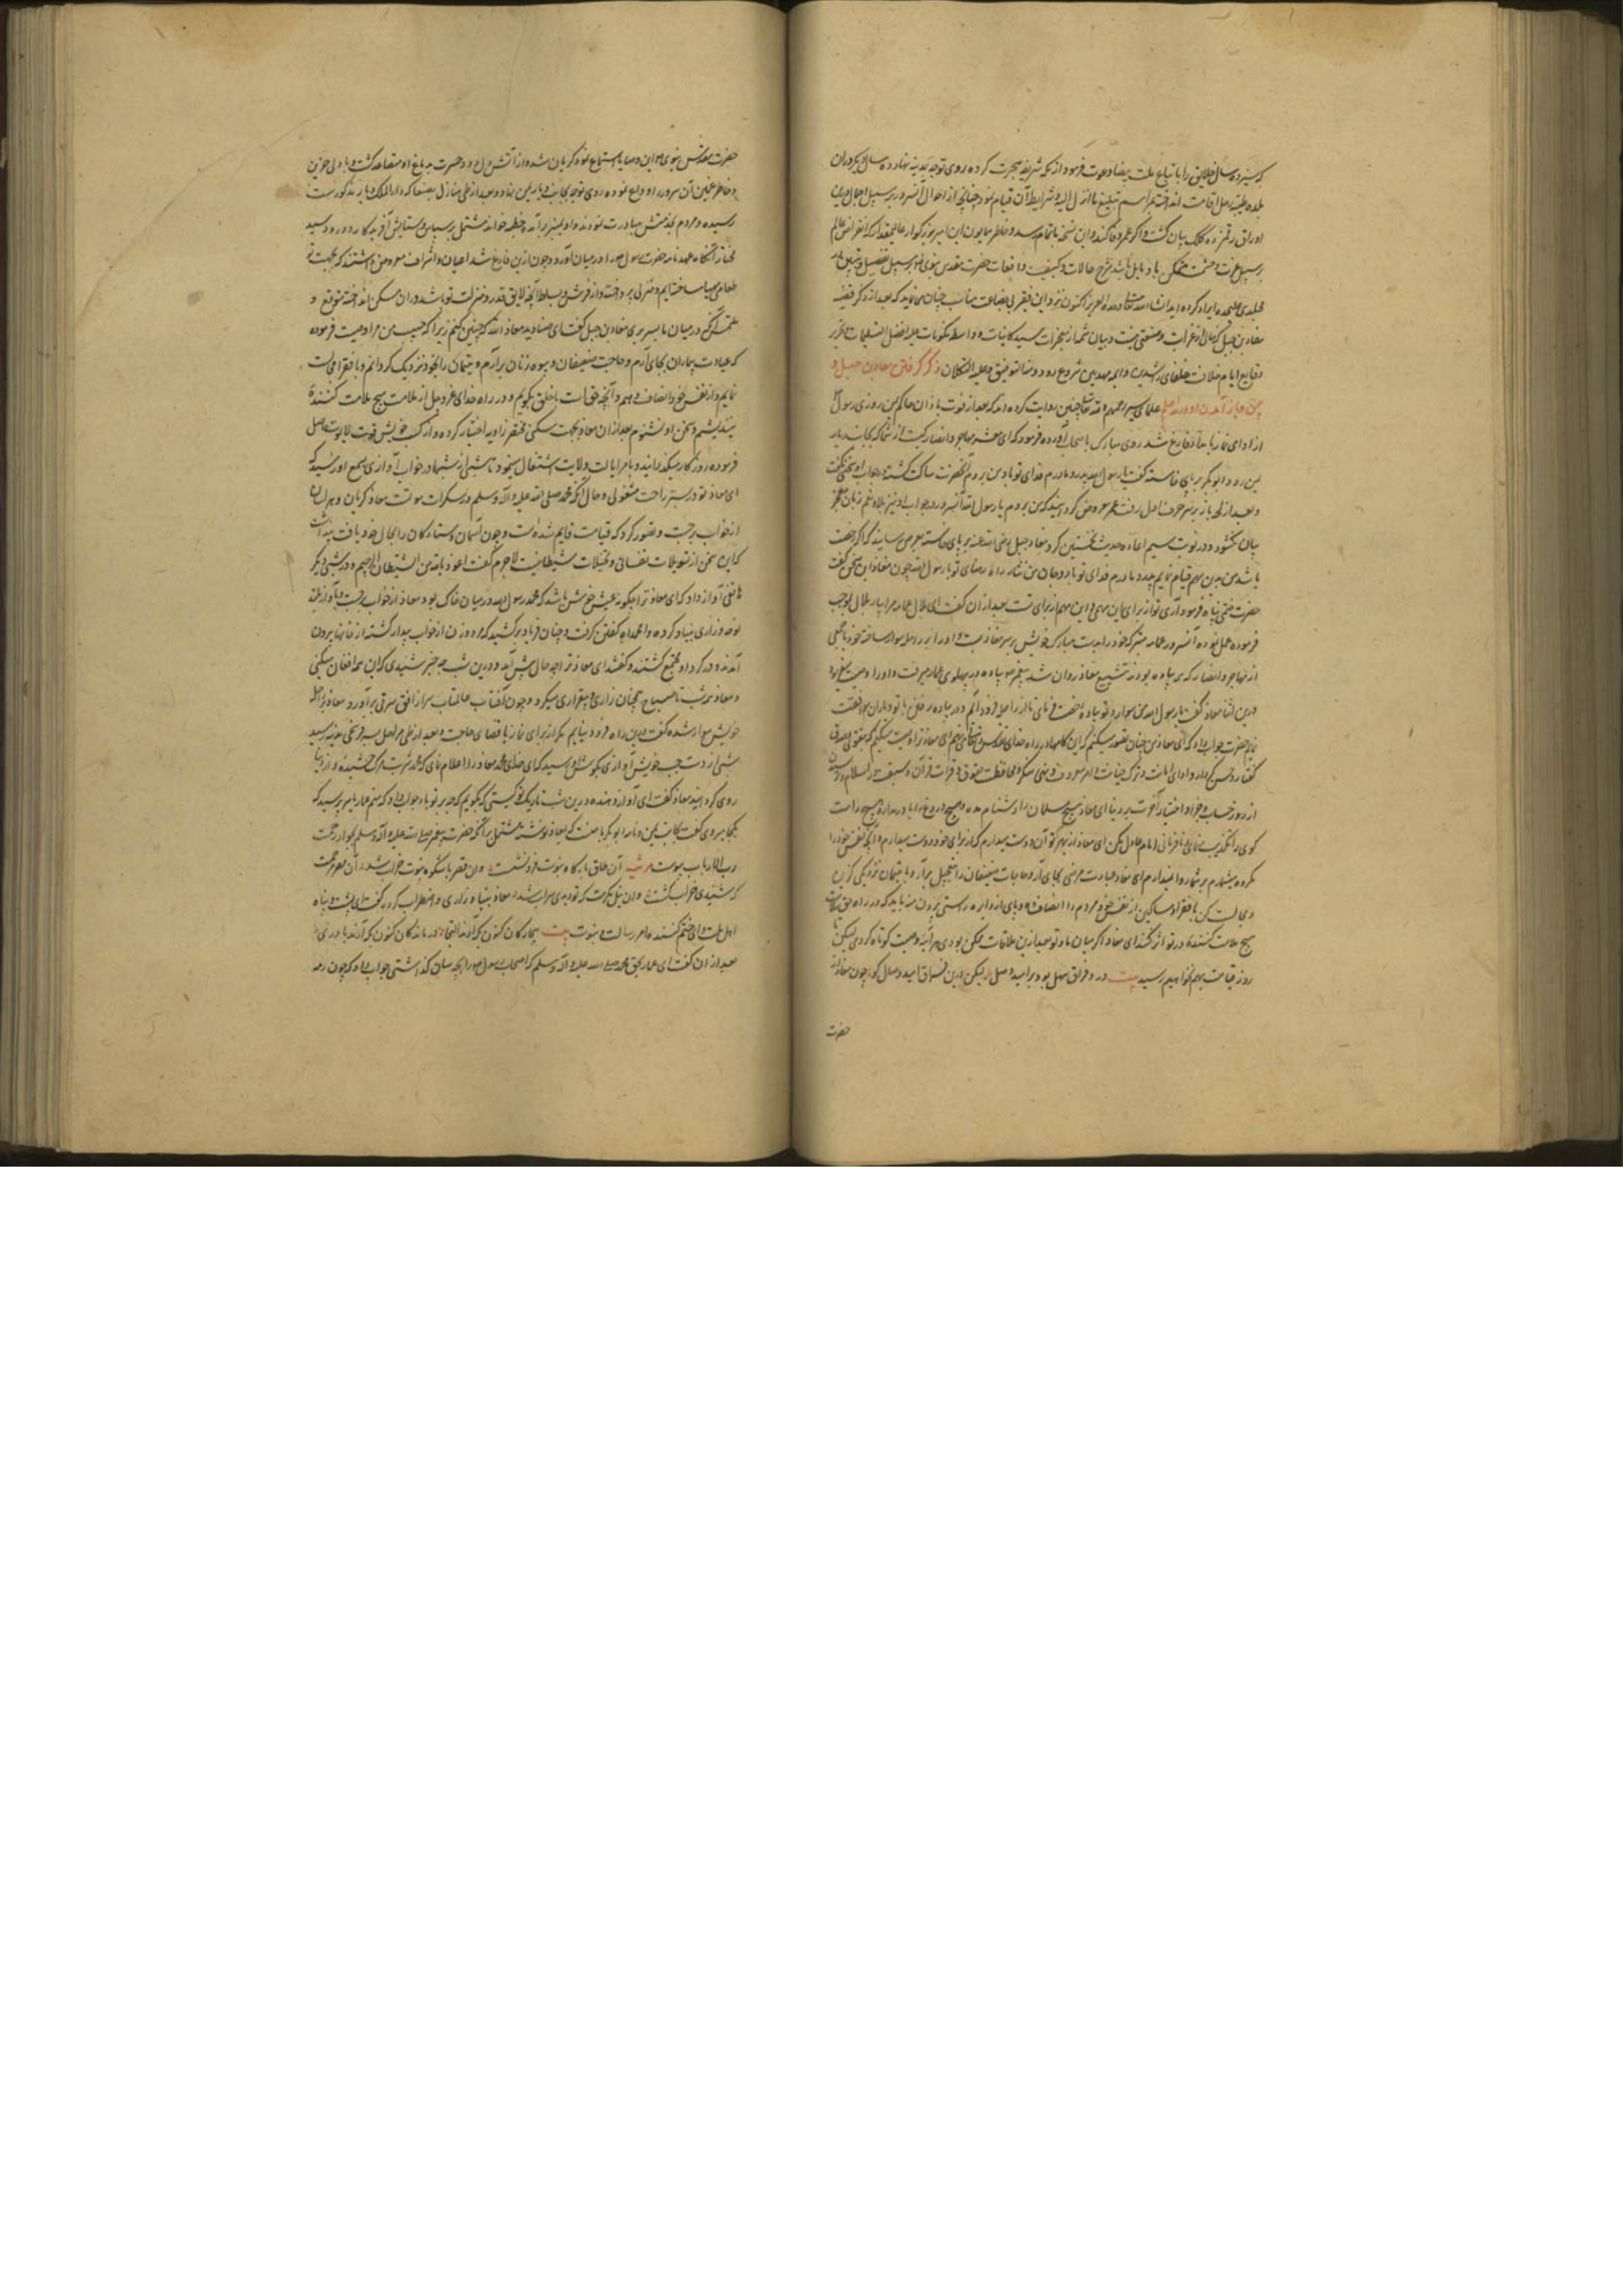 که سیزده سال خلایق را باتباع ملت بیضا دعوت فرمود از مکه شریفه هجرت کرده روی توجه بمدینه نهاد و ده سال دیگر در ان
بلده طیبه رحل اقامت انداخته بمراسم تبلیغ ما انزل الیه و شرایط آن قیام نمود چنانچه از احوال آنسرور بر سبیل اجمال درین
اوراق رقمزده کلک بیان گشت و اگر عمر وفا کند و این نسخه باتمام رسد و خاطر همایون این امیر بزرگوار عالیمقدار که
بر سبیل عزت و حشمت متمکن باد مایل باشد شرح حالات و کیفیت واقعات حضرت مقدس نبوی بر سبیل تفصیل
مجلدی علیحده ایراد کرده اید انشاء الله تعالی وحده العزیز اکنون نزد این فقیر بی بضاعت مناسب چنان می نماید که بعد از ذکر قصه
معاذ بن جبل که خالی از غرابت و صنعتی نیست و بیان شمه از معجزات سید کاینات و واسطه مکونات علیه افضل التسلیمات بتحریر
وقایع ایام خلافت خلفای راشدین و ائمه مهدیین شروع رود و منه التوفیق و علیه التکلان ذکر رفتن معاذ بن جبل و
یمن و باز آمدن او علمای سیر رحمهم الله تعالی چنین روایت کرده اند که بعد از فوت باذان حاکم یمن روزی رسول
از ادای نماز بامداد فارغ شد روی مبارک باصحاب آورده فرمود که ای معشر مهاجر و انصار کیست از شما که بجانب دیار
یمن رود ابو بکر بر پای خاسته گفت یا رسول الله پدر و مادرم فدای تو باد من بروم آنحضرت ساکت گشته جواب او نگفت
و بعد از لحظه باز بر سر حرف اول رفت عمر معروض گردانید که من بروم یا رسول الله آنسرور در جواب او نیز زبان
بیان نگشود و در نوبت سیم اعاده حدیث نخستین کرد معاذ جبل رضی الله عنه بر پای خاسته بعرض رسانید که اگر رخصت
باشد من بدین مهم قیام نمایم پدر و مادرم فدای تو باد و جان من نثار راه رضای تو یا رسول الله چون معاذ این سخن گفت
حضرت ختمی پناه فرمود آری تو از برای این مهمی و این مهم از برای تست بعد از ان گفت ای بلال عمامه مرا بیار بلال بموجب
فرموده عمل نموده آنسرور عمامه متبرکه خود را بدست مبارک خویش بر سر معاذ بست و او را بر راحله سوار ساخته خود با جمعی
از مهاجر و انصار که پیاده بودند بتشییع معاذ روان شد پیغمبر پیاده در پهلوی معاذ میرفت و او را وصیت میفرمود
درین اثنا معاذ گفت یا رسول الله من سوار و تو پیاده رخصت فرمای تا از راحله فرود آیم و در پیاده رفتن با تو و یاران موافقت
نمایم حضرت جواب داد که ای معاذ من چنان تصور میکنم که این گامها در راه خدای تعالی می نهم ای معاذ ترا وصیت میکنم که بتقوی و صدق
گفتار و حسن کردار و ادای امانت و ترک خیانت و امر معروف و نهی منکر و محافظت حقوق و قرائت قرآن و سبقت در اسلام و ترسیدن
از روز حساب و جزا و اختیار آخرت بر دنیا ای معاذ هیچ مسلمان را دشنام مده و هیچ دروغ را باور مدار و هیچ راست
گوی را تکذیب منمای و نافرمانی امام عادل مکن ای معاذ از بهر تو آن دوست میدارم که از برای خود دوست میدارم و آنچه نفس خود را
مکروه میشمارم بر تو روا نمیدارم ای معاذ عیادت مرضی بجای آر و حاجات ضعیفان را بتعجیل برآر و با یتیمان نزدیکی گزین
و مجالست کن با فقرا و مساکین از نفس خود مردم را انصاف ده و پای از دایره راستی بیرون منه باید که در راه حق ملامت
هیچ ملامت کننده در تو اثر نکند ای معاذ اگر میان ما و تو بعد ازین ملاقات ممکن بودی هر آینه وصیت کوتاه کردمی لیکن تا
روز قیامت بهم نخواهیم رسید بیت درد فراق سهل بود بر امید وصل لیکن درین فراق امید وصال کو چون معاذ از
حضرت
حضرت مقدس نبوی این وصایا استماع نمود گریان شده و از آتش دل دود حسرت بدماغ او متصاعد گشت و با دلی حزین
و خاطر غمین آن سرور را وداع نموده روی توجه بجانب دیار یمن نهاد و بعد از طی منازل بصنعا که دار الملک دیار مذکورست
رسیده و مردم بخدمتش مبادرت نمودند و او بمنبر برآمده خطبه خواند مشتمل بر سپاس و ستایش آفریدگار و درود سید
مختار آنگاه عهدنامه حضرت رسول را در میان آورد و چون ازین فارغ شد اعیان و اشراف معروض داشتند که بجهت تو
طعامی مهیا ساخته ایم و منزلی پرداخته و از فرش و بساط آنچه لایق قدر و منزلت تو باشد در ان مسکن انداخته متوقع و
ملتمس آنکه در میان ما بسر بری معاذ بن جبل گفت ای صنادید معاذ الله که چنین کنم زیرا که حبیب من مرا وصیت فرموده
که عیادت بیماران بجای آرم و حاجت ضعیفان و بیوه زنان برآرم و یتیمان را بخود نزدیک گردانم و با فقرا مجالست
نمایم و از نفس خود انصاف دهم و آنچه حق است با خلق بگویم و در راه خدای عز و جل از ملامت هیچ ملامت کننده
نیندیشم و سخن او نشنوم بعد از ان معاذ بجهت سکنی مختصر زاویه اختیار کرده و از کسب خویش قوت لا یموت حاصل
فرموده روزگار میگذرانید و بامر ایالت ولایت اشتغال مینمود تا شبی از شبها در خواب آوازی بسمع او رسید که
ای معاذ تو در بستر راحت مشغولی و حال آنکه محمد صلی الله علیه و آله و سلم در سکرات موتست معاذ گریان و هراسان
از خواب برجست و تصور کرد که قیامت قایم شده است و چون آسمان و ستارگان را بحال خود یافت پنداشت
که این سخن از تسویلات نفسانی و تخیلات شیطانیست لاجرم گفت اعوذ بالله من الشیطان الرجیم و در شبی دیگر
هاتفی آواز داد که ای معاذ ترا چگونه عیش خوش باشد که محمد رسول الله در میان خاک بود معاذ از خواب برجست و بآواز بلند
نوحه و زاری بنیاد کرده وا محمداه گفتن گرفت و چنان فریاد برکشید که مرد و زن از خواب بیدار گشته از خانها بیرون
آمدند و در گرد او مجتمع گشتند و گفتند ای معاذ ترا چه حال پیش آمد و درین شب چه خبر شنیدی که این همه افغان میکنی
و معاذ همه شب تا صباح همچنان زاری و بیقراری میکرد و چون آفتاب عالمتاب سر از افق شرقی برآورد معاذ بر راحله
خویش سوار شده گفت درین راه فرود نیایم مگر از برای نماز یا قضای حاجت و بعد از طی مراحل سه فرسخی مدینه رسید
شبی از دست چپ خویش آوازی بگوش او رسید که ای خدای محمد معاذ را اعلام نمای که محمد شربت مرگ چشیده و از دنیا
روی گردانید معاذ گفت ای آواز دهنده درین شب تاریک تو کیستی که بگویم که خبر بر تو باد جواب داد که منم عمار یاسر پرسید که
بکجا میروی گفت بجانب یمن و نامه ابو بکر با منست که بمعاذ نوشته مشتمل بر آنکه حضرت پیغمبر صلی الله علیه و آله و سلم بجوار رحمت
رب الارباب پیوست مرثیه آن طاق بارگاه نبوت فرو نشست و ان قصر با شکوه نبوت خراب شد آن مصر رحمت
که شنیدی خراب گشت و ان نیل مکرمت که تو دیدی سراب شد معاذ بنیاد زاری و اضطراب کرد و گفت ای پشت و پناه
اهل ملت و ای ختم کننده امر رسالت و نبوت بیت بیچارگان کنون که آرند التجا درماندگان کنون که آرند یاوری
بعد از ان گفت ای عمار بحق محمد صلی الله علیه و آله و سلم که اصحاب رسول را بچه سان گذاشتی جواب داد که چون رمه